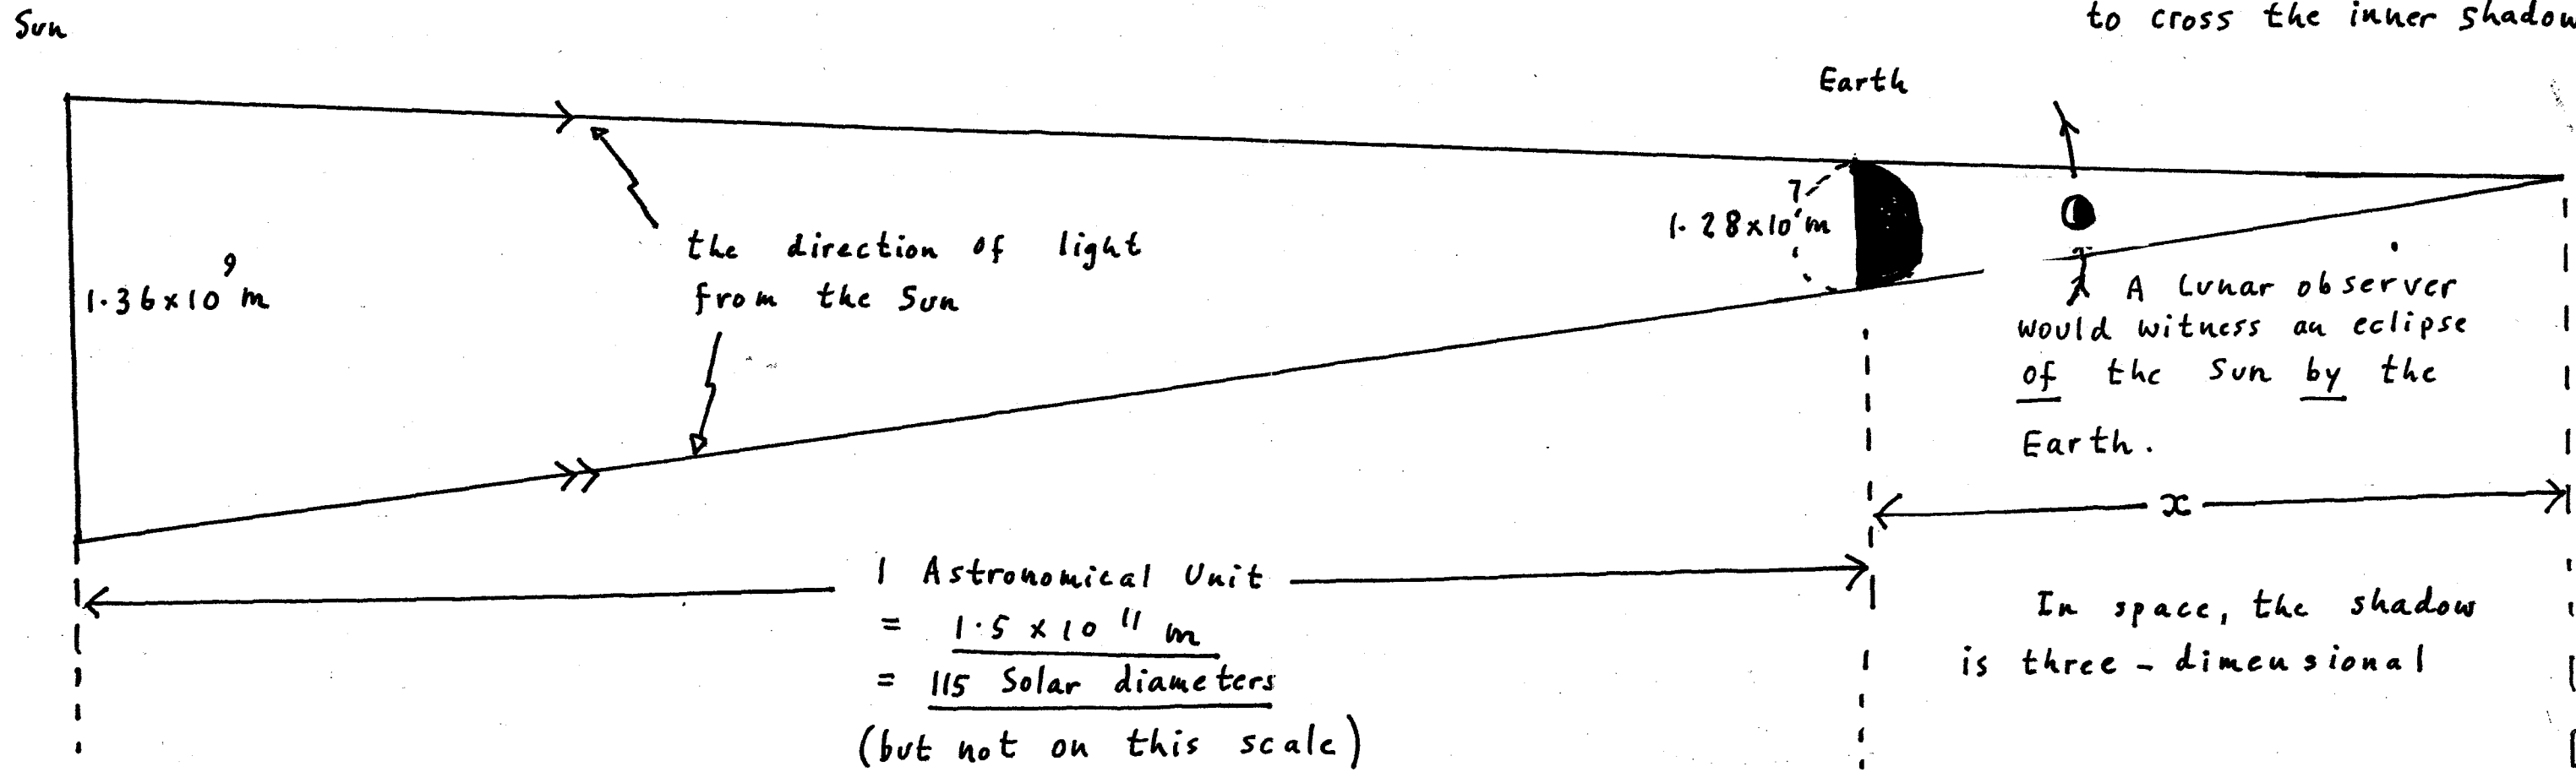 Sun
to cross the inner shadow
Earth
1.28x10⁷m
the direction of light
from the Sun
1.36x10⁹m
A Lunar observer
would witness an eclipse
of the Sun by the
Earth.
x
1 Astronomical Unit
= 1.5 x 10¹¹ m
= 115 Solar diameters
(but not on this scale)
In space, the shadow
is three-dimensional